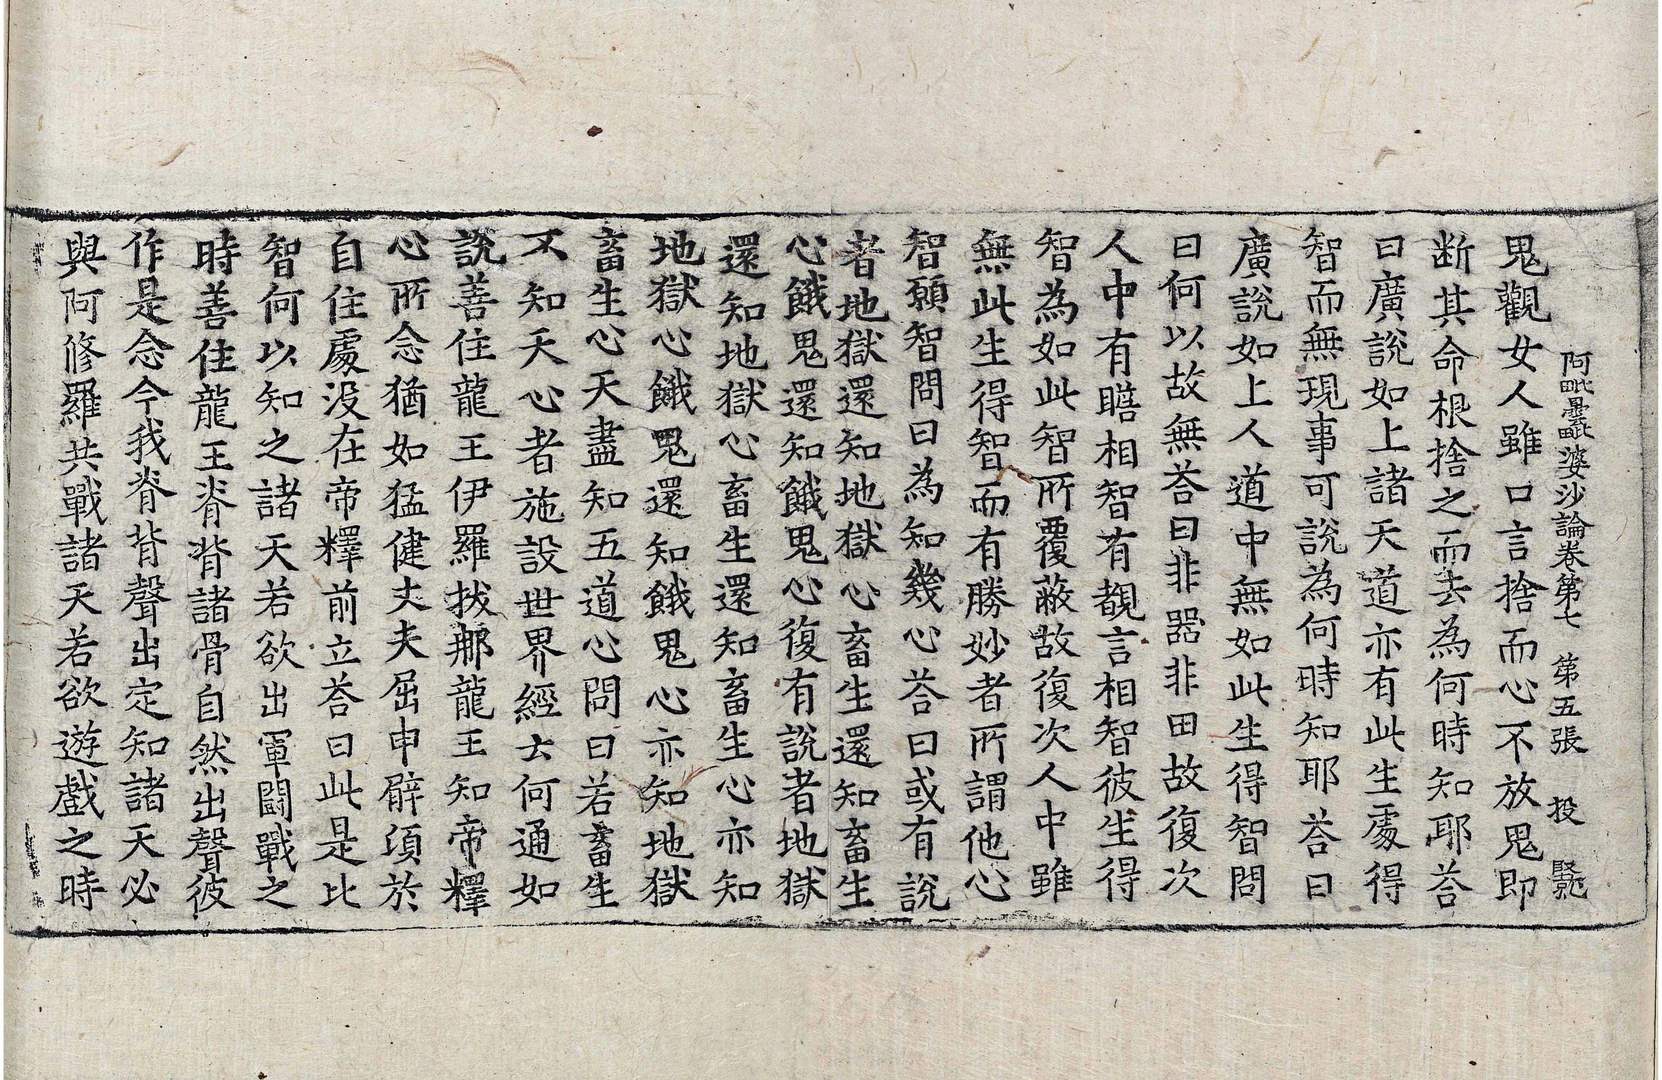 阿毗曇毗婆沙論卷第七　第五張　投
鬼觀女人雖口言捨而心不放鬼即
断其命根捨之而去為何時知耶荅
曰廣說如上諸天道亦有此生處得
智而無現事可說為何時知耶荅曰
廣說如上人道中無如此生得智問
曰何以故無荅曰非器非田故復次
人中有瞻相智有覩言相智彼生得
智為如此智所覆蔽故復次人中雖
無此生得智而有勝妙者所謂他心
智願智問曰為知幾心荅曰或有說
者地獄還知地獄心畜生還知畜生
心餓鬼還知餓鬼心復有說者地獄
還知地獄心畜生還知畜生心亦知
地獄心餓鬼還知餓鬼心亦知地獄
畜生心天盡知五道心問曰若畜生
不知天心者施設世界經云何通如
說善住龍王伊羅拔那龍王知帝釋
心所念猶如猛健丈夫屈申臂湏於
自住處没在帝釋前立荅曰此是比
智何以知之諸天若欲出軍鬪戰之
時善住龍王脊背諸骨自然出聲彼
作是念今我脊背聲出定知諸天必
與阿修羅共戰諸天若欲遊戲之時